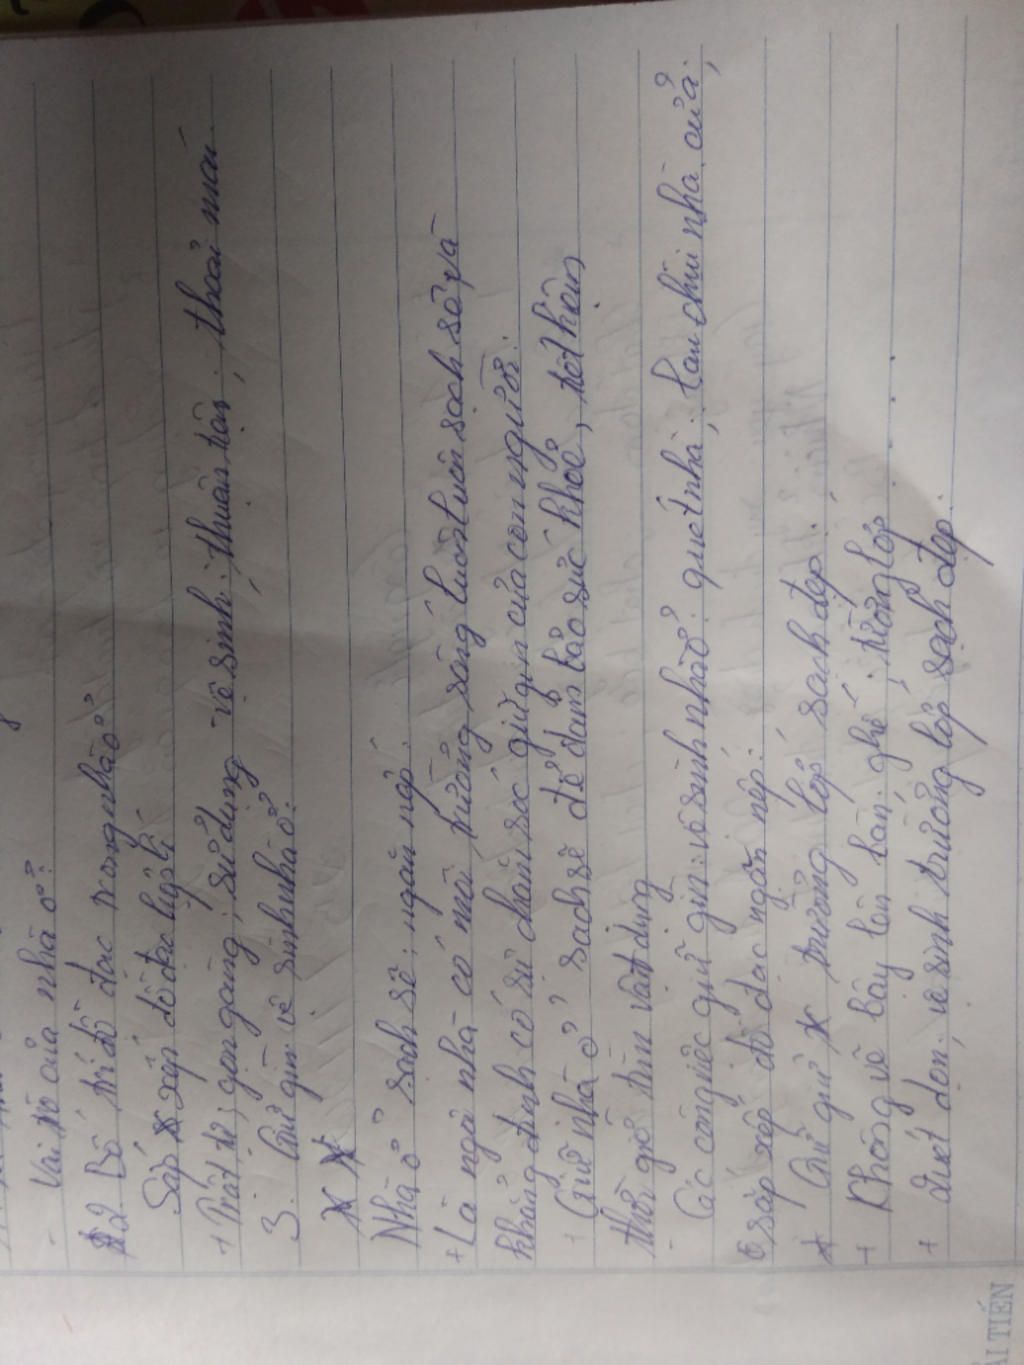 - Vai trò của nhà ở?
2 Bố trí đồ đạc trong nhà ở?
Sắp xếp đồ đạc hợp lí
+ Trật tự; gọn gàng; sử dụng vệ sinh; thuận tiện; thoải mái.
3. Giữ gìn vệ sinh nhà ở?
Nhà ở sạch sẽ; ngăn nắp.
+ Là ngôi nhà có môi trường sống luôn luôn sạch sẽ và
khẳng định có sự chăm sóc giữ gìn của con người.
+ Giữ nhà ở sạch sẽ để đảm bảo sức khoẻ, tiết kiệm
thời gian tìm vật dụng
- Các công việc giữ gìn vệ sinh nhà ở: quét nhà; lau chùi nhà cửa;
sắp xếp đồ đạc ngăn nắp.
+ Giữ trường lớp sạch đẹp.
+ Không vẽ bậy lên bàn ghế; tường lớp
+ quét dọn; vệ sinh trường lớp sạch đẹp.
ẢI TIẾN